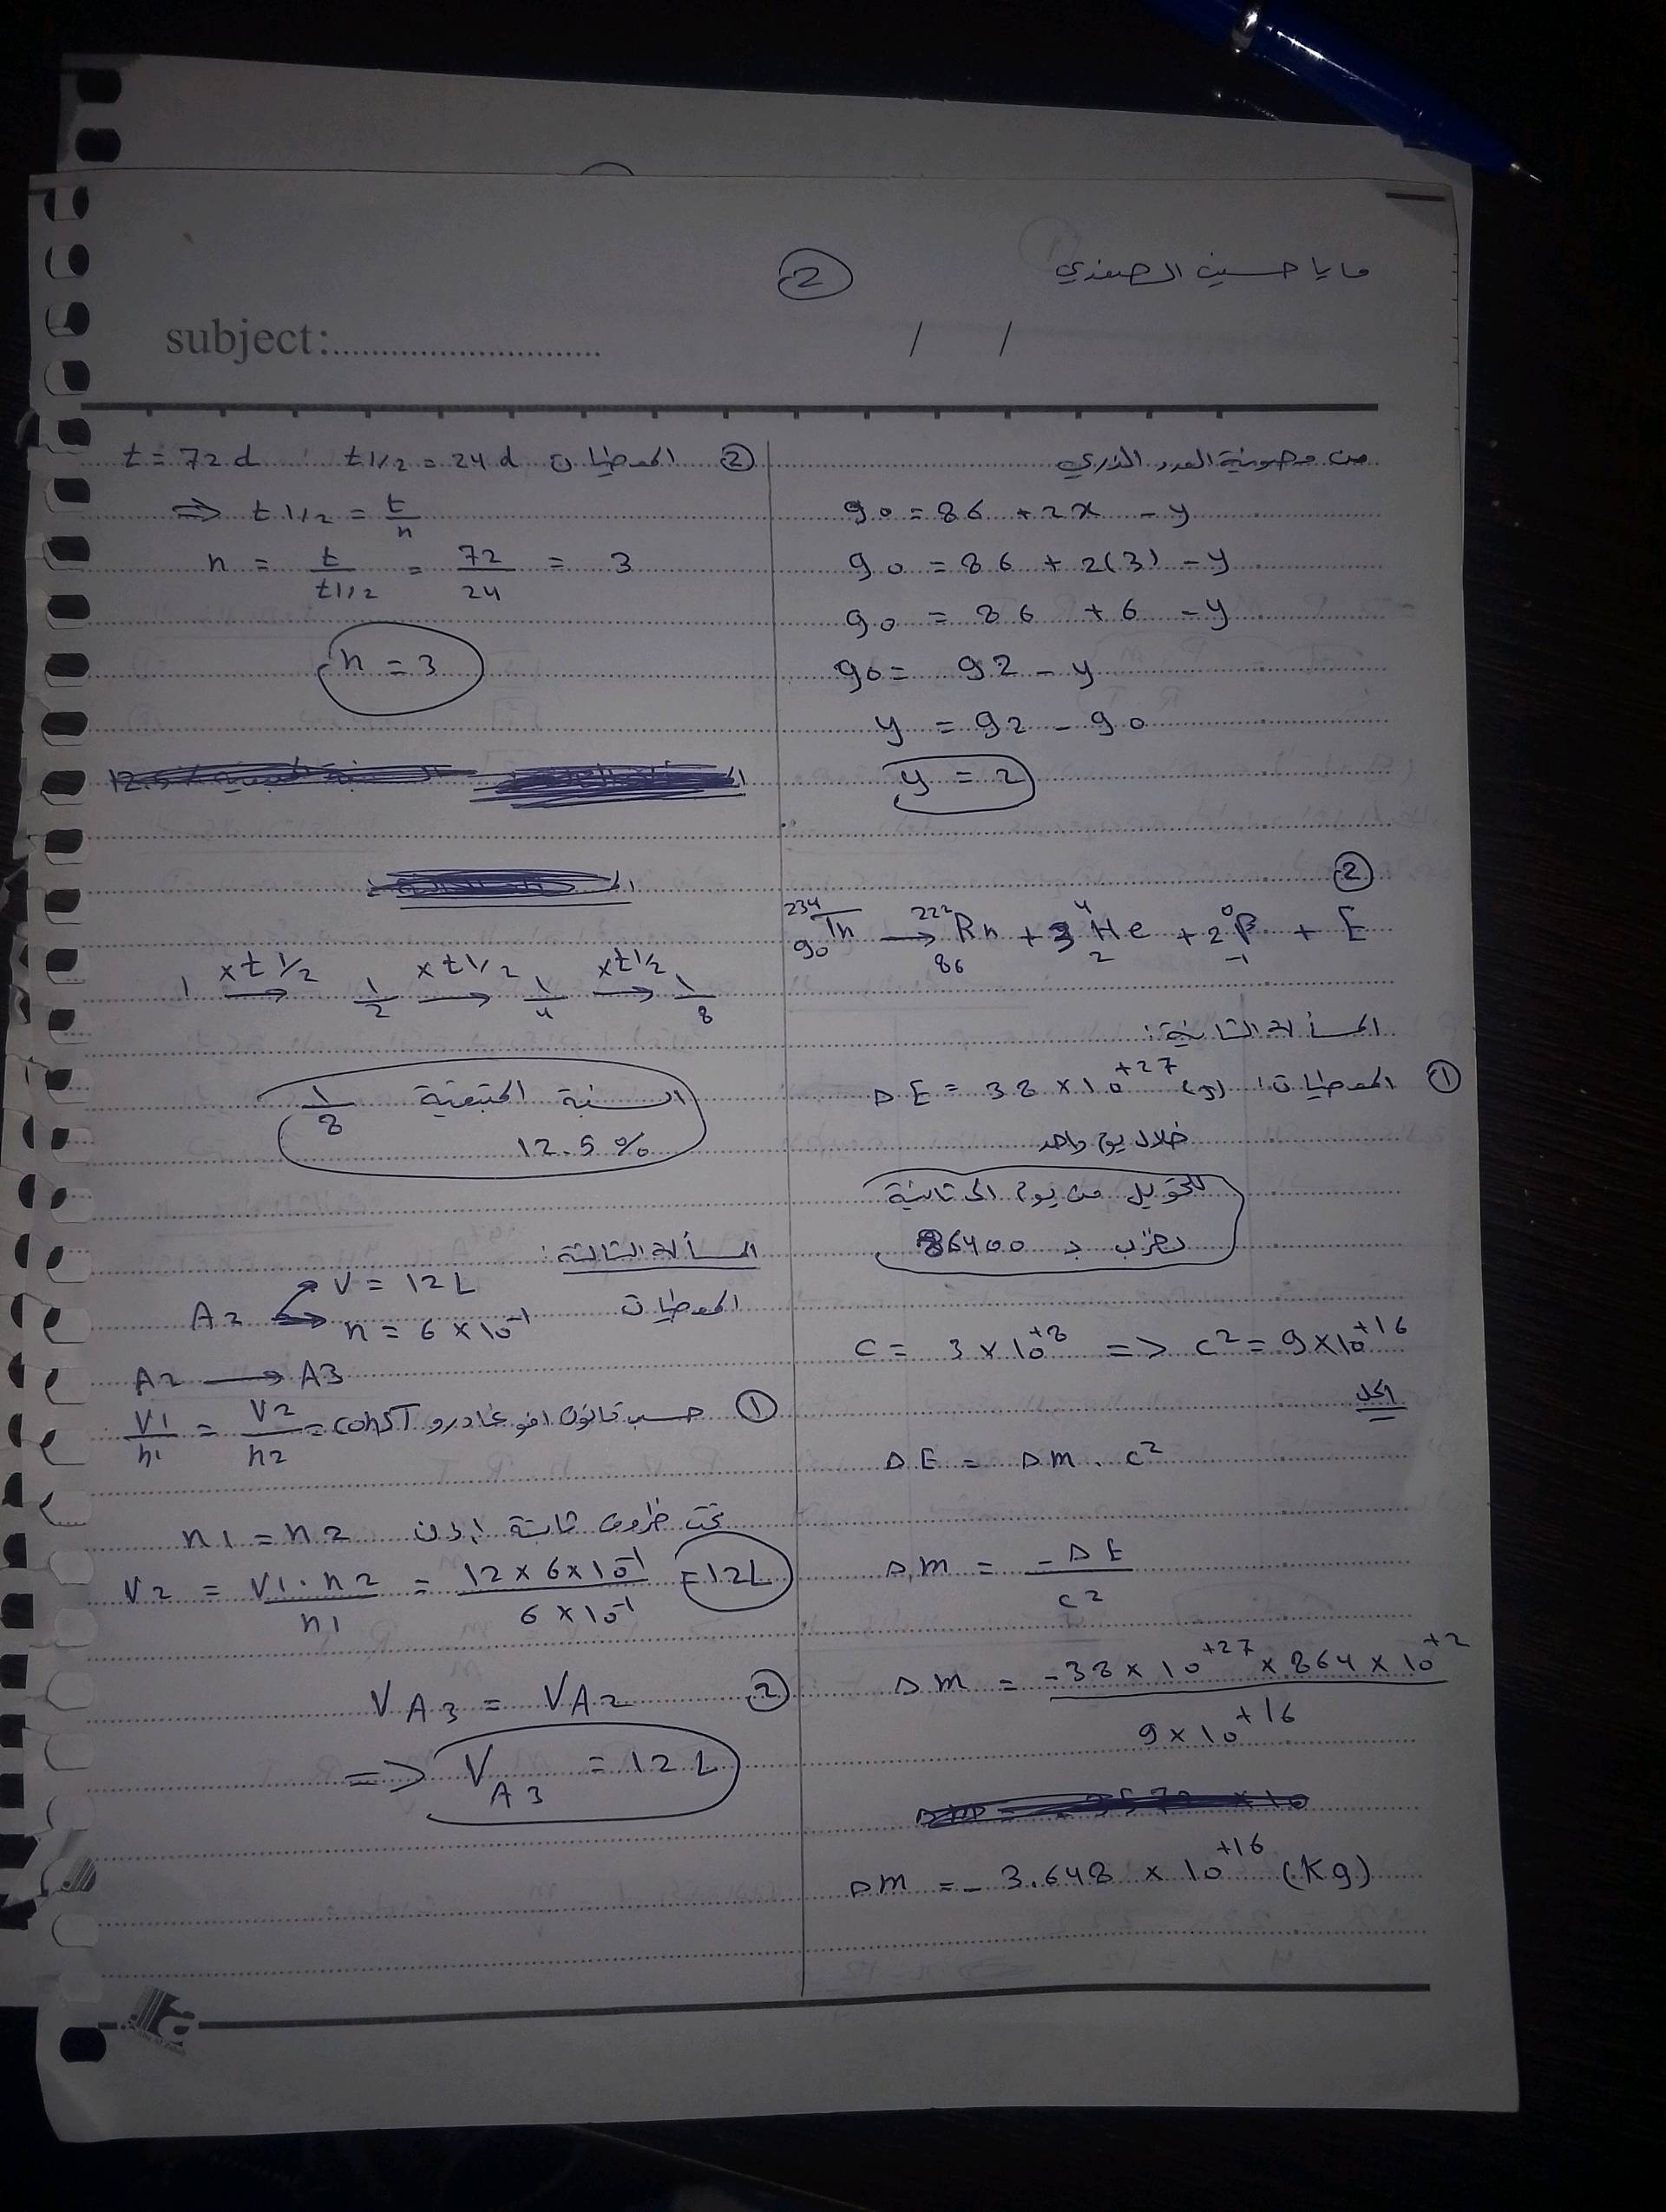 مايا حسين الصفدي
2
subject:
/ /
من مصونية العدد الذري
90 = 86 + 2x - y
90 = 86 + 2(3) - y
90 = 86 + 6 - y
90 = 92 - y
y = 92 - 90
y = 2
2
²³⁴₉₀Th → ²²²₈₆Rn + 3 ⁴₂He + 2 ⁰₋₁β + E
المسألة الثانية:
1 المعطيات: ΔE = 38 × 10⁺²⁷ (J)
خلال يوم واحد
للتحويل من يوم الى ثانية
نضرب بـ 86400
C = 3 × 10⁺⁸ => C² = 9 × 10⁺¹⁶
الحل
ΔE = Δm . C²
Δm = -ΔE / C²
Δm = -38 × 10⁺²⁷ × 864 × 10⁺² / 9 × 10⁺¹⁶
Δm = - 3.648 × 10⁺¹⁶ (Kg)
2 المعطيات t1/2 = 24 d t = 72 d
=> t1/2 = t/n
n = t / t1/2 = 72/24 = 3
n = 3
1 ×t1/2 → 1/2 ×t1/2 → 1/4 ×t1/2 → 1/8
النسبة المتبقية 1/8
12.5 %
المسألة الثالثة:
المعطيات
A2 V = 12 L
n = 6 × 10⁻¹
A2 → A3
1 حسب قانون افوغادرو V1/n1 = V2/n2 = const
تحت ظروف ثابتة اذن n1 = n2
V2 = V1 . n2 / n1 = 12 × 6 × 10⁻¹ / 6 × 10⁻¹ = 12L
2 VA3 = VA2
=> VA3 = 12 L